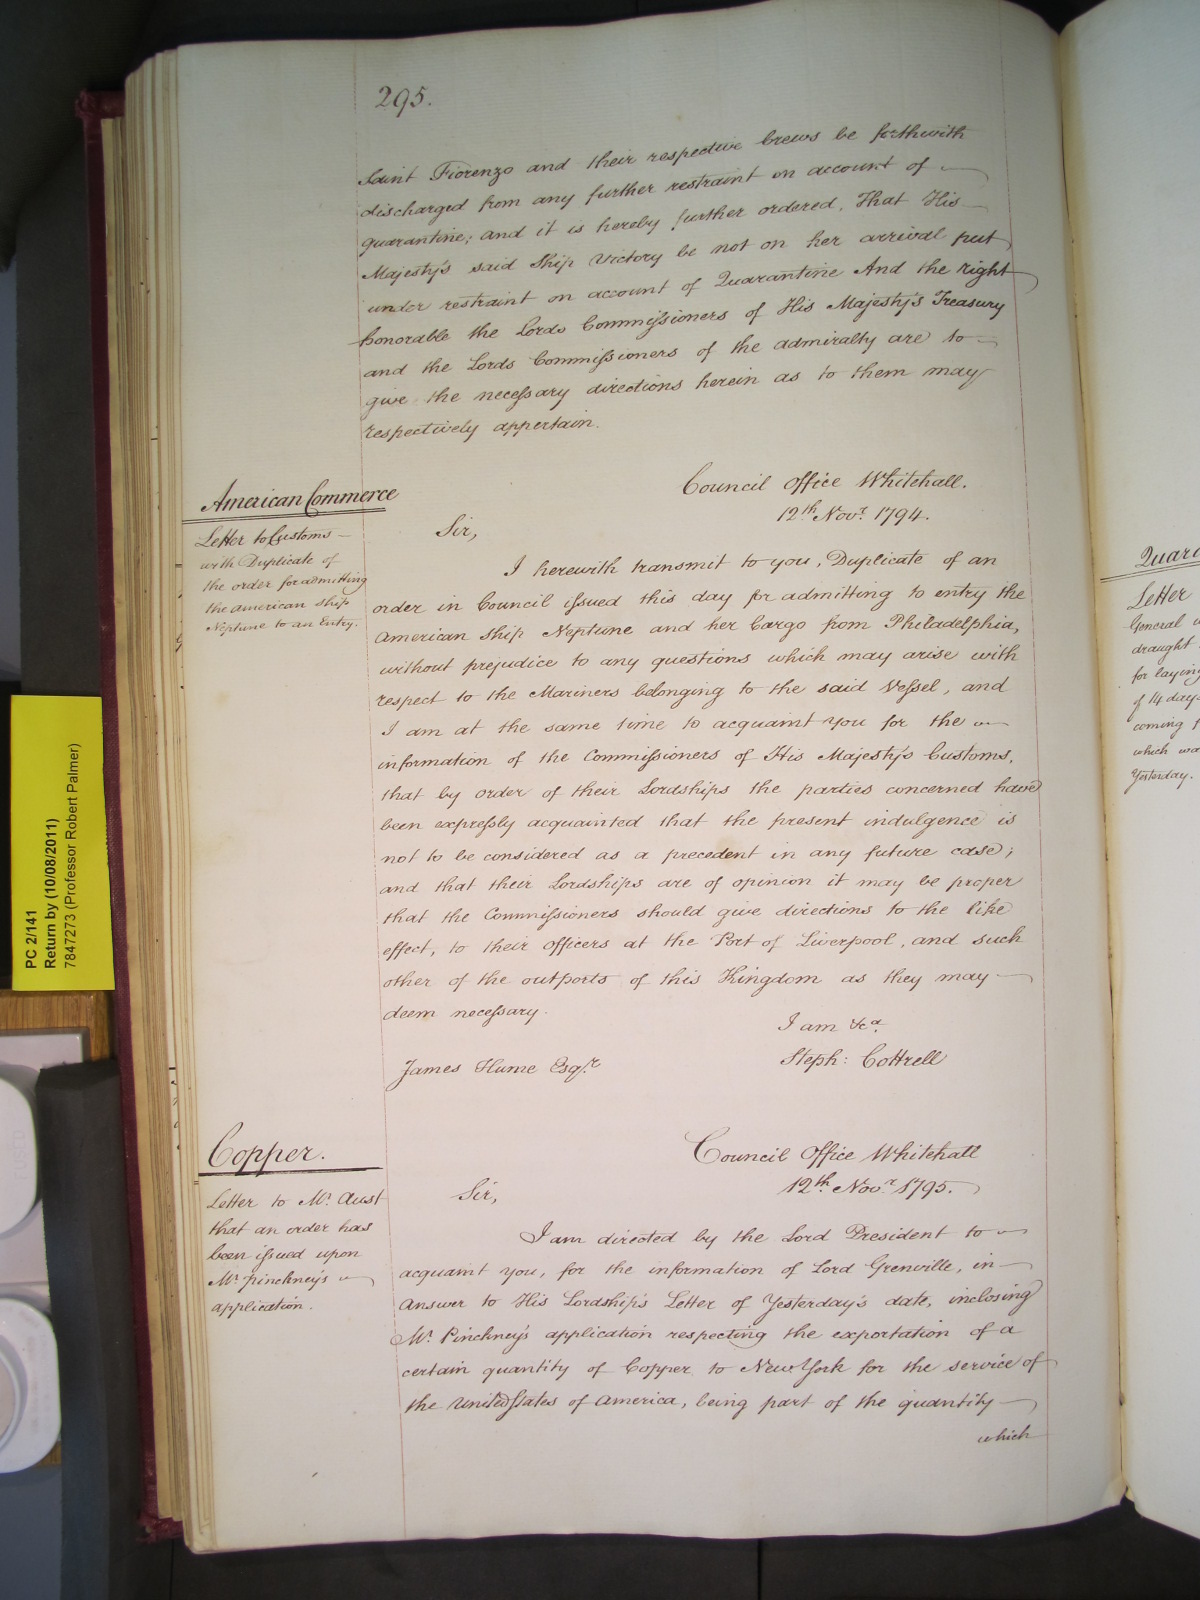 295.
Saint Fiorenzo and their respective Crews be forthwith
discharged from any further restraint on account of
quarantine; and it is hereby further ordered, That His
Majesty's said Ship Victory be not on her arrival put
under restraint on account of Quarantine And the right
honorable the Lords Commissioners of His Majesty's Treasury
and the Lords Commissioners of the admiralty are to
give the necessary directions herein as to them may
respectively appertain.
American Commerce
Letter to Customs
with Duplicate of
the order for admitting
the american ship
Neptune to an Entry.
Council Office Whitehall.
12th Novr. 1794.
Sir,
I herewith transmit to you, Duplicate of an
order in Council issued this day for admitting to entry the
American Ship Neptune and her Cargo from Philadelphia,
without prejudice to any questions which may arise with
respect to the Mariners belonging to the said Vessel, and
I am at the same time to acquaint you for the
information of the Commissioners of His Majesty's Customs,
that by order of their Lordships the parties concerned have
been expressly acquainted that the present indulgence is
not to be considered as a precedent in any future case;
and that their Lordships are of opinion it may be proper
that the Commissioners should give directions to the like
effect, to their officers at the Port of Liverpool, and such
other of the outports of this Kingdom as they may
deem necessary.
I am &ca.
Steph: Cottrell
James Hume Esqr.
Copper.
Letter to Mr. Aust
that an order has
been issued upon
Mr. pinckney's
application.
Council Office Whitehall
12th. Novr. 1795.
Sir,
I am directed by the Lord President to
acquaint you, for the information of Lord Grenville, in
answer to His Lordship's Letter of Yesterday's date, inclosing
Mr. Pinckney's application respecting the exportation of a
certain quantity of Copper to New York for the service of
the United States of America, being part of the quantity
which
PC 2/141
Return by (10/08/2011)
7847273 (Professor Robert Palmer)
Letter
General
draught
for laying
of 14 day
coming
which
Yesterday.